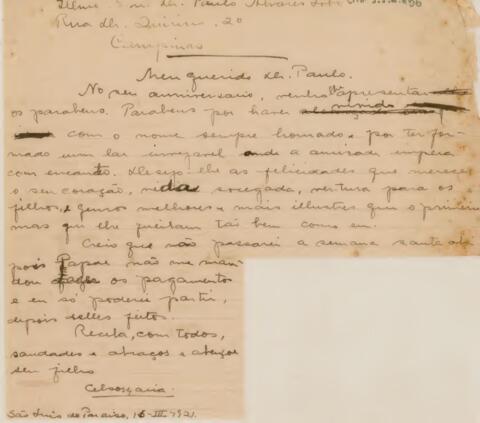 Illmo. Snr. Dr. Paulo Alvares Lobo
Rua Dr. Quirino, 20
Campinas
Meu querido Dr. Paulo.
No seu anniversario, venho lhe apresentar
os parabens. Parabens por haver vivido
com o nome sempre honrado, por ter for-
mado um lar invejavel onde a amizade impera
com encanto. Desejo-lhe as felicidades que merece
o seu coração, vida socegada, ventura para os
filhos, e genros melhores e mais illustres que o primeiro
mas que lhe queiram tão bem como eu.
Creio que não passarei a semana santa ahi
pois Papae não me man-
dou fazer os pagamentos
e eu só poderei partir,
depois delles feitos.
Receba, com todos,
saudades e abraços e abençoe
seu filho
Celso Garcia.
São Luis do Paraiso, 16-III-921.